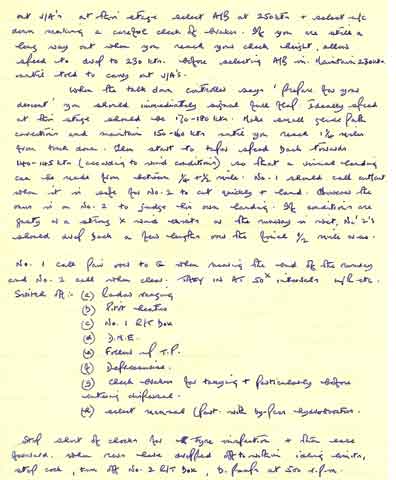 out V/A's at this stage select A/B at 250 kts + select u/c
down making a careful check of brakes. If you are still a
long way out when you reach your check height, allow
speed to drop to 230 kts. before selecting A/B in. Maintain 230 kts
until told to carry out V/A's.
When the talk down controller says 'prepare for your
descent' you should immediately signal full flap. Ideally speed
at this stage should be 170-180 kts. Make small glide path
corrections and maintain 150-160 kts until you reach 1½ miles
from touch down. Then start to taper speed back towards
140-145 kts (according to wind conditions) so that a visual landing
can be made from between ¼ + ½ mile. No. 1 should call
when it is safe for No. 2 to cut quickly + land. the
onus is on No. 2 to judge his own landing. If conditions are
gusty or a strong X wind exists or the runway is wet, No. 2's
should drop back a few lengths over the final ½ mile
No. 1 call fair over to G when nearing the end of the runway
and No. 2 call when clear. THEY IN AT 50ˣ intervals
Switch off:- (a) Radar ranging
(b) Pitot heater
(c) No. 1 R/T Box
(d) D.M.E.
(e)
(f) Defrosters.
(g) Check brakes for taxying + particularly before
entering dispersal.
(h) select normal
Stop short of chocks for tyre inspection + then ease
forward. When revs have dropped off to within idling limits,
stop cock, turn off No. 2 R/T Box, at 500 r.p.m.